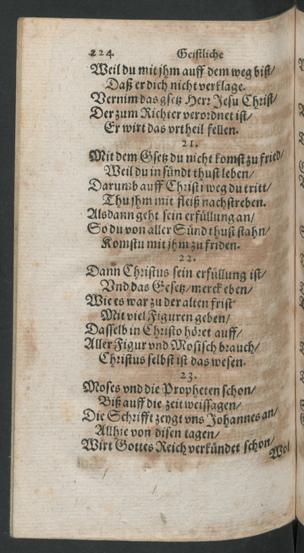 224 Geistliche
Weil du mit jhm auff dem weg bist/
Daß er dich nicht verklage.
Vernim das gsetz Herr Jesu Christ/
Der zum Richter verordnet ist/
Er wirt das vrtheil fellen.
21.
Mit dem Gsetz du nicht komst zu fried/
Weil du in sündt thust leben/
Darumb auff Christi weg du tritt/
Thu jhm mit fleiß nachstreben.
Als dann geht sein erfüllung an/
So du von aller Sünd thust stahn/
Komstu mit jhm zu friden.
22.
Dann Christus sein erfüllung ist/
Vnd das Gesetz/ merck eben/
Wie es war zu der alten frist
Mit viel Figuren geben/
Dasselb in Christo höret auff/
Aller Figur vnd Mosisch brauch/
Christus selbst ist das wesen.
23.
Moses vnd die Propheten schon/
Biß auff die zeit weissagen/
Die Schrifft zeugt vns Johannes an/
Allhie von disen tagen/
Wirt Gottes Reich verkündet schon/
Wol